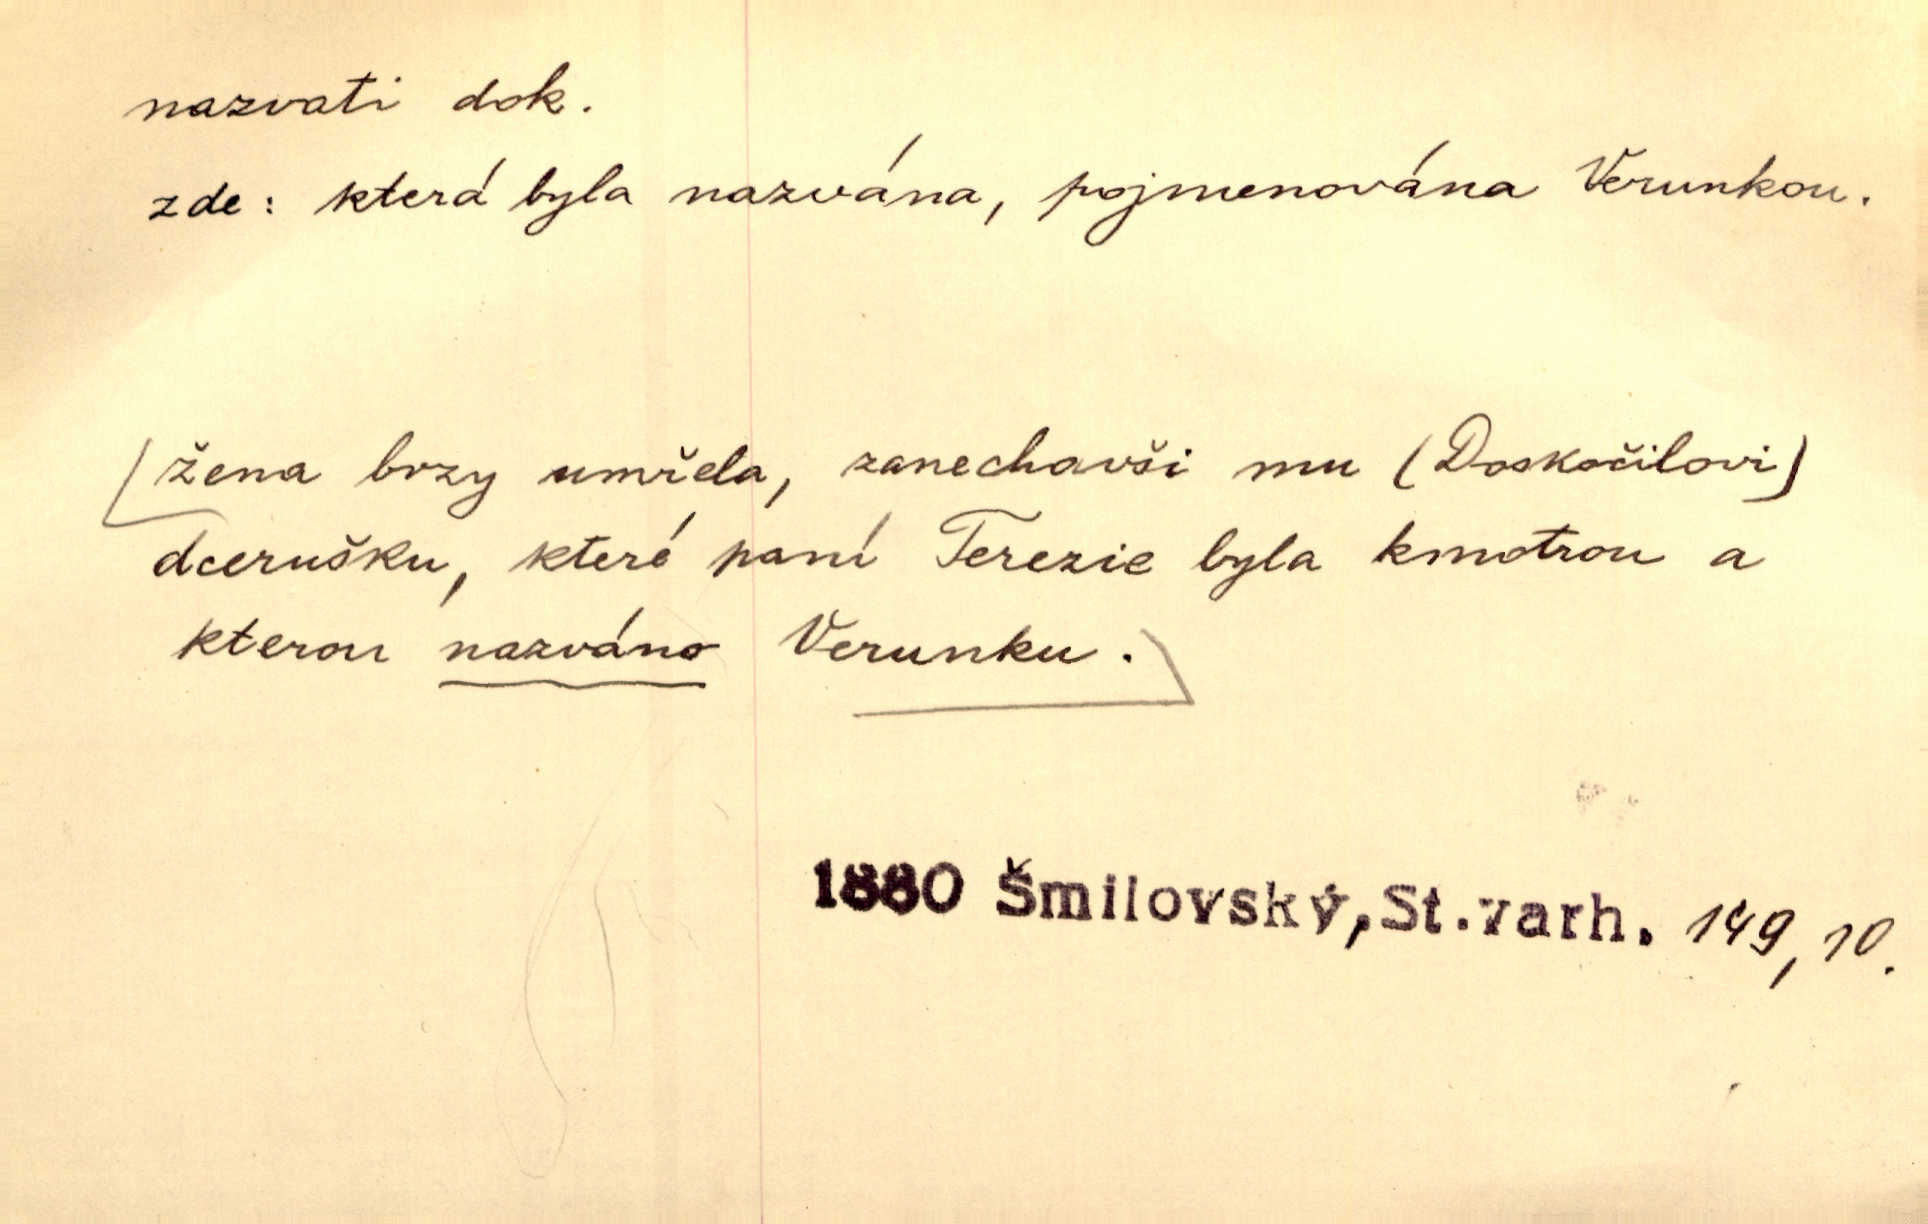 nazvati dok.
zde: která byla nazvána, pojmenována Verunkou.
žena brzy umřela, zanechavši mu (Doskočilovi)
dcerušku, které paní Terezie byla kmotrou a
kterou nazváno Verunku.
1880 Šmilovský, St.varh. 149, 10.